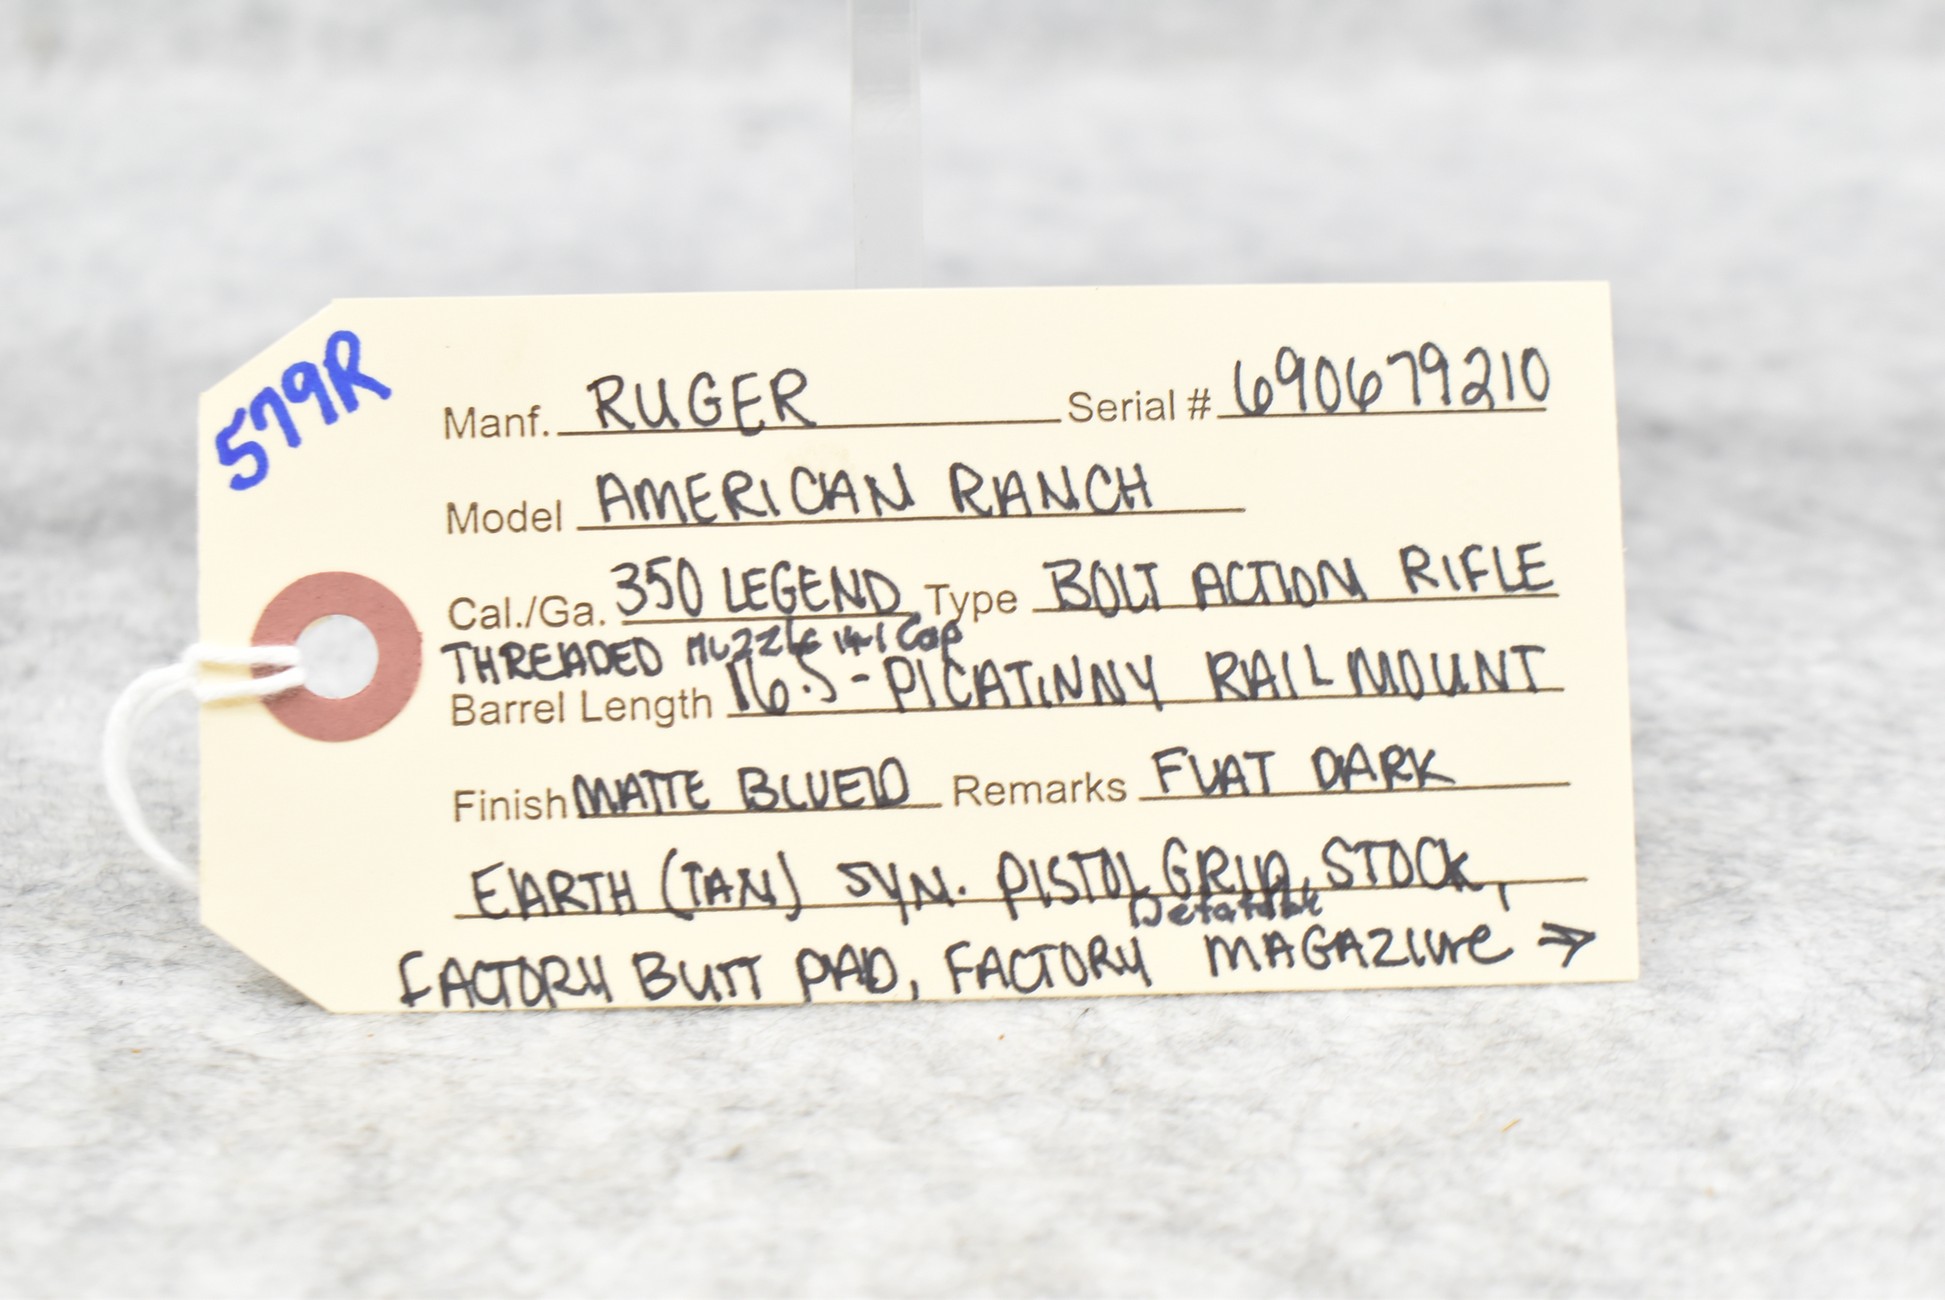 579R
Manf. RUGER Serial # 690679210
Model AMERICAN RANCH
Cal./Ga. 350 LEGEND Type BOLT ACTION RIFLE
THREADED Muzzle w/ Cap
Barrel Length 16.5 - PICATINNY RAIL MOUNT
Finish MATTE BLUED Remarks FLAT DARK
EARTH (TAN) SYN. PISTOL GRIP, STOCK,
Detatable
FACTORY BUTT PAD, FACTORY MAGAZINE →